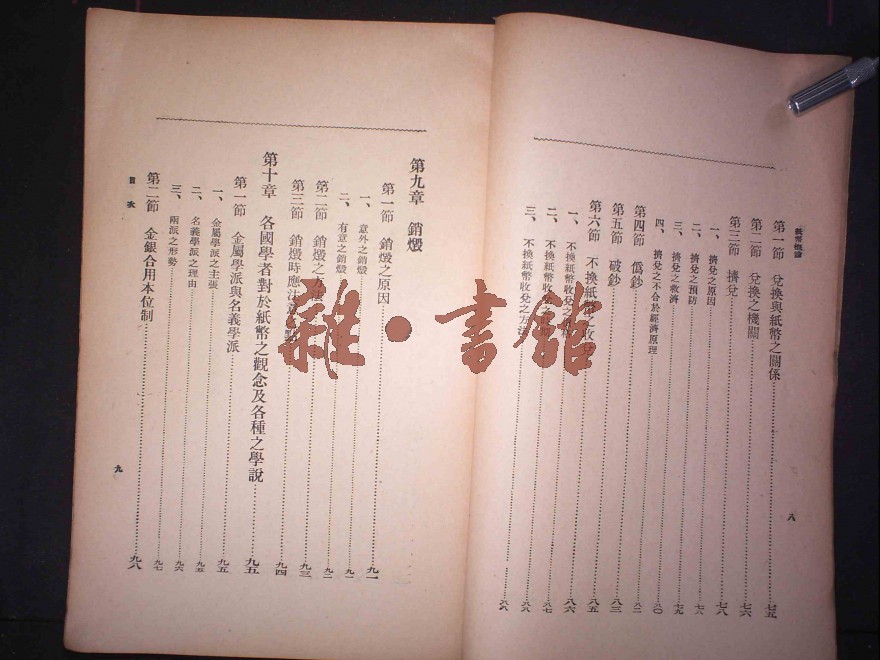 紙幣概論
第一節 兌換與紙幣之關係……七五
第二節 兌換之機關……七六
第三節 擠兌……七八
一、擠兌之原因……七八
二、擠兌之預防……
三、擠兌之救濟……七九
四、擠兌之不合於經濟原理……八〇
第四節 偽鈔……八二
第五節 破鈔……八三
第六節 不換紙幣之收兌……八五
一、不換紙幣收兌之……八六
二、不換紙幣收兌之……八七
三、不換紙幣收兌之方法……八八
八
第九章 銷燬……九一
第一節 銷燬之原因……九一
一、意外之銷燬……九一
二、有意之銷燬……九二
第二節 銷燬之方法……九三
第三節 銷燬時應注意之點……九四
第十章 各國學者對於紙幣之觀念及各種之學說……九五
第一節 金屬學派與名義學派……九五
一、金屬學派之主張……九五
二、名義學派之理由……九六
三、兩派之形勢……九七
第二節 金銀合用本位制……九八
目次
九
雜·書館